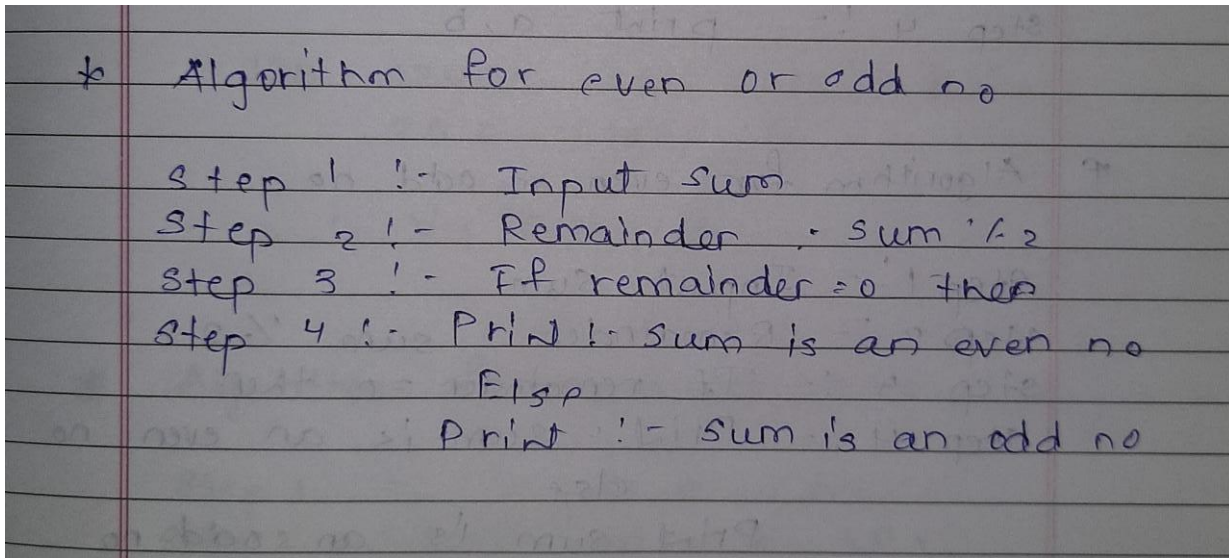 * Algorithm for even or odd no
Step 1 :- Input sum
Step 2 :- Remainder = sum % 2
Step 3 :- If remainder = 0 then
Step 4 :- Print :- sum is an even no
Else
Print :- sum is an odd no